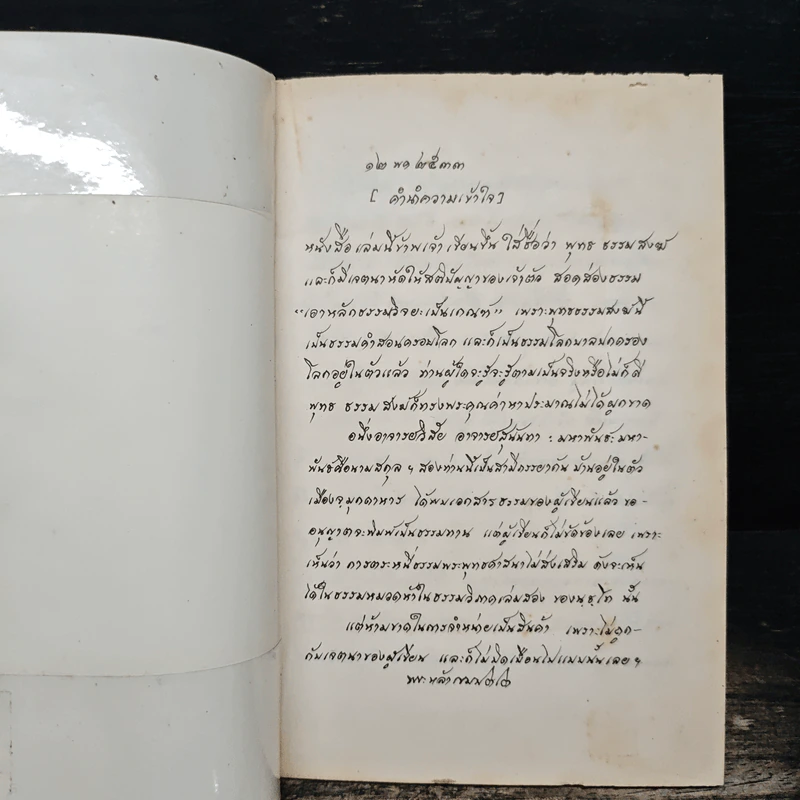 ๑๒ พ.ย ๒๕๓๓
[ คำนำความเข้าใจ ]
หนังสือเล่มนี้ข้าพเจ้าเขียนขึ้น ใส่ชื่อว่า พุทธ ธรรม สงฆ์
และก็มีเจตนาหัดให้สติปัญญาของเจ้าตัว สอดส่องธรรม
"เอาหลักธรรมวิจยะเป็นเกณฑ์" เพราะพุทธธรรมสงฆ์นี้
เป็นธรรมคำสอนครอบโลก และก็เป็นธรรมโลกบาลปกครอง
โลกอยู่ในตัวแล้ว ท่านผู้ใดจะรู้จะรู้ตามเป็นจริงหรือไม่ก็ดี
พุทธ ธรรม สงฆ์ก็ทรงพระคุณค่าหาประมาณไม่ได้ผูกขาด
อนึ่งอาจารย์วิสัย อาจารย์สุนันทา : มหาพันธ: มหา-
พันธคือนามสกุล ฯ สองท่านนี้เป็นสามีภรรยากัน บ้านอยู่ในตัว
เมืองจ.มุกดาหาร ได้พบเอกสารธรรมของผู้เขียนแล้ว ขอ-
อนุญาตจะพิมพ์เป็นธรรมทาน แต่ผู้เขียนก็ไม่ขัดข้องเลย เพราะ
เห็นว่า การตระหนี่ธรรมพระพุทธศาสนาไม่ส่งเสริม ดังจะเห็น
ได้ในธรรมหมวดห้าในธรรมวิภาคเล่มสอง ของนั้น
แต่ห้ามขาดในการจำหน่ายเป็นสินค้า เพราะไม่ถูก-
กับเจตนาของผู้เขียน และก็ไม่บิดเบือนไปแบบนั้นเลย ฯ
พระหล้า เขมปตฺโต